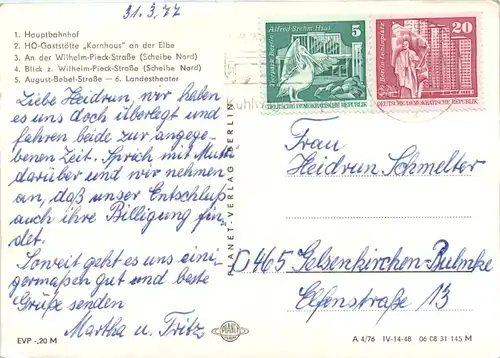 31.3.77
1. Hauptbahnhof
2. HO-Gaststötte „Kornhaus" an der Elbe
3. An der Wilhelm-Pieck-Straße (Scheibe Nord)
4. Blick z. Wilhelm-Pieck-Straße (Scheibe Nord)
5. August-Bebel-Straße — 6. Landestheater
Liebe Heidrun, wir haben
es uns doch überlegt und
fahren beide zur angege-
benen Zeit. Sprich mit Mutti
darüber und wir nehmen
an, daß unser Entschluß
auch ihre Billigung fin-
det.
Soweit geht es uns eini-
germaßen gut und beste
Grüße senden
Martha u. Fritz
EVP -,20 M
PLANET-VERLAG BERLIN
PLANET
Alfred-Brehm-Haus
5
Tierpark Berlin
DEUTSCHE DEMOKRATISCHE REPUBLIK
20
Berlin-Leninplatz
DEUTSCHE DEMOKRATISCHE REPUBLIK
Frau
Heidrun Schmelter
D 465 Gelsenkirchen-Bulmke
Elfenstraße 13
A 4/76 IV-14-48 06 08 31 145 M